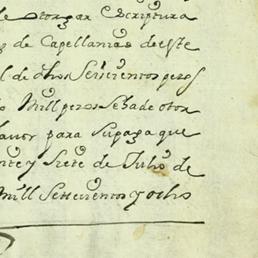 de otorgar Escriptura
de Capellanias de este
l de dhos Setecientos pesos
Mill pesos se ha de otor
favor para su paga que
nte y Siete de Julio de
Mill Settecientos y ocho